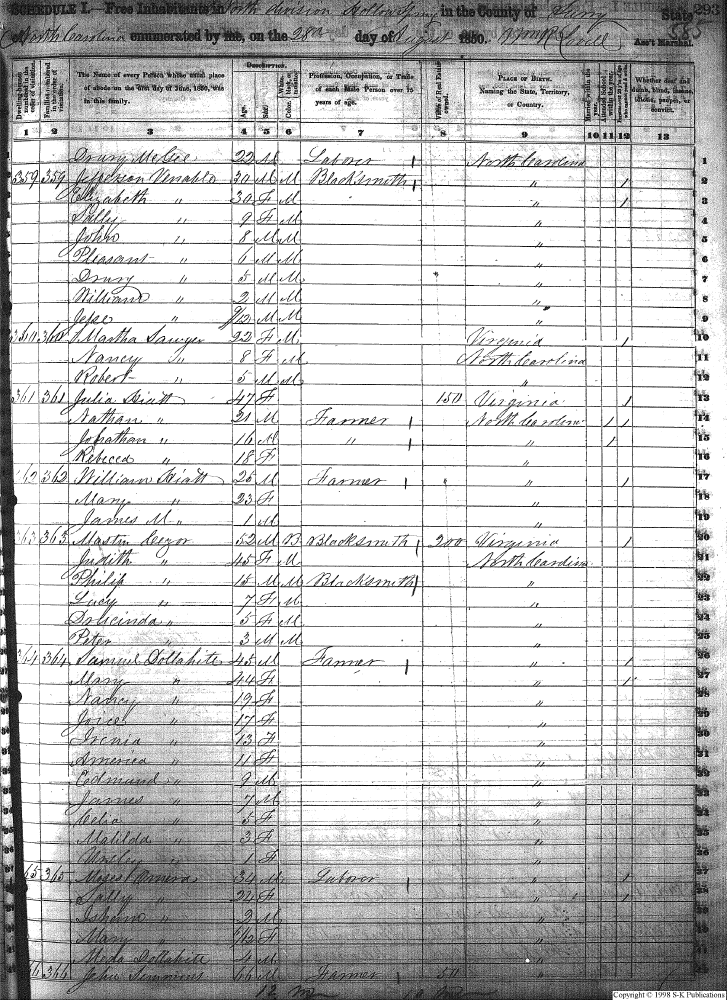 SCHEDULE I.—Free Inhabitants in North division Hollow Spring in the County of Surry State
293
585
of North Carolina enumerated by me, on the 28th day of August 1850. Wm R Lovill Ass't Marshal.
Dwelling-houses numbered in the order of visitation.
Families numbered in the order of visitation.
The Name of every Person whose usual place of abode on the first day of June, 1850, was in this family.
Description.
Age.
Sex.
Color
Profession, Occupation, or Trade of each Male Person over 15 years of age.
Value of Real Estate owned.
Place of Birth. Naming the State, Territory, or Country.
Whether deaf and dumb, blind, insane, idiotic, pauper, or convict.
1 2 3 4 5 6 7 8 9 10 11 12 13
Drury McGee 22 M Laborer North Carolina 1
359 359 Jefferson Venable 30 M M Blacksmith " 1 2
Elizabeth " 30 F M " 1 3
Sally " 9 F M " 4
John " 8 M M " 5
Pleasant " 6 M M " 6
Drury " 5 M M " 7
William " 2 M M " 8
Jesse " 9/12 M M " 9
360 360 Martha Sawyer 22 F M Virginia 1 10
Nancy " 8 F M North Carolina 11
Robert " 5 M M " 12
361 361 Julia Hiatt 47 F 150 Virginia 1 13
Nathan " 21 M Farmer North Carolina 1 1 14
Jonathan " 16 M " " 1 15
Rebecca " 18 F " 16
362 362 William Hiatt 25 M Farmer " 1 17
Mary " 23 F " 18
James M " 1 M " 19
363 363 Mastin 52 M B Blacksmith 200 Virginia 1 20
Judith " 45 F M North Carolina 21
Philip " 15 M M Blacksmith " 22
Lucy " 7 F M " 23
" 5 F M " 24
Peter " 3 M M " 25
364 364 Samuel Dollahite 45 M Farmer " 1 26
Mary " 44 F " 1 27
Nancy " 19 F " 28
Joice " 17 F " 29
" 13 F " 30
America " 11 F " 31
Edmund " 9 M " 32
James " 7 M " 33
Celia " 5 F " 34
Matilda " 3 F " 35
" 1 F " 36
365 365 Moses 34 M Laborer " 1 37
Sally " 24 F " 1 38
Isham " 2 M " 39
Mary " F " 40
Dollahite 4 M " 41
366 366 John Simmons 66 M Farmer 50 " 42
Copyright © 1998 S-K Publications